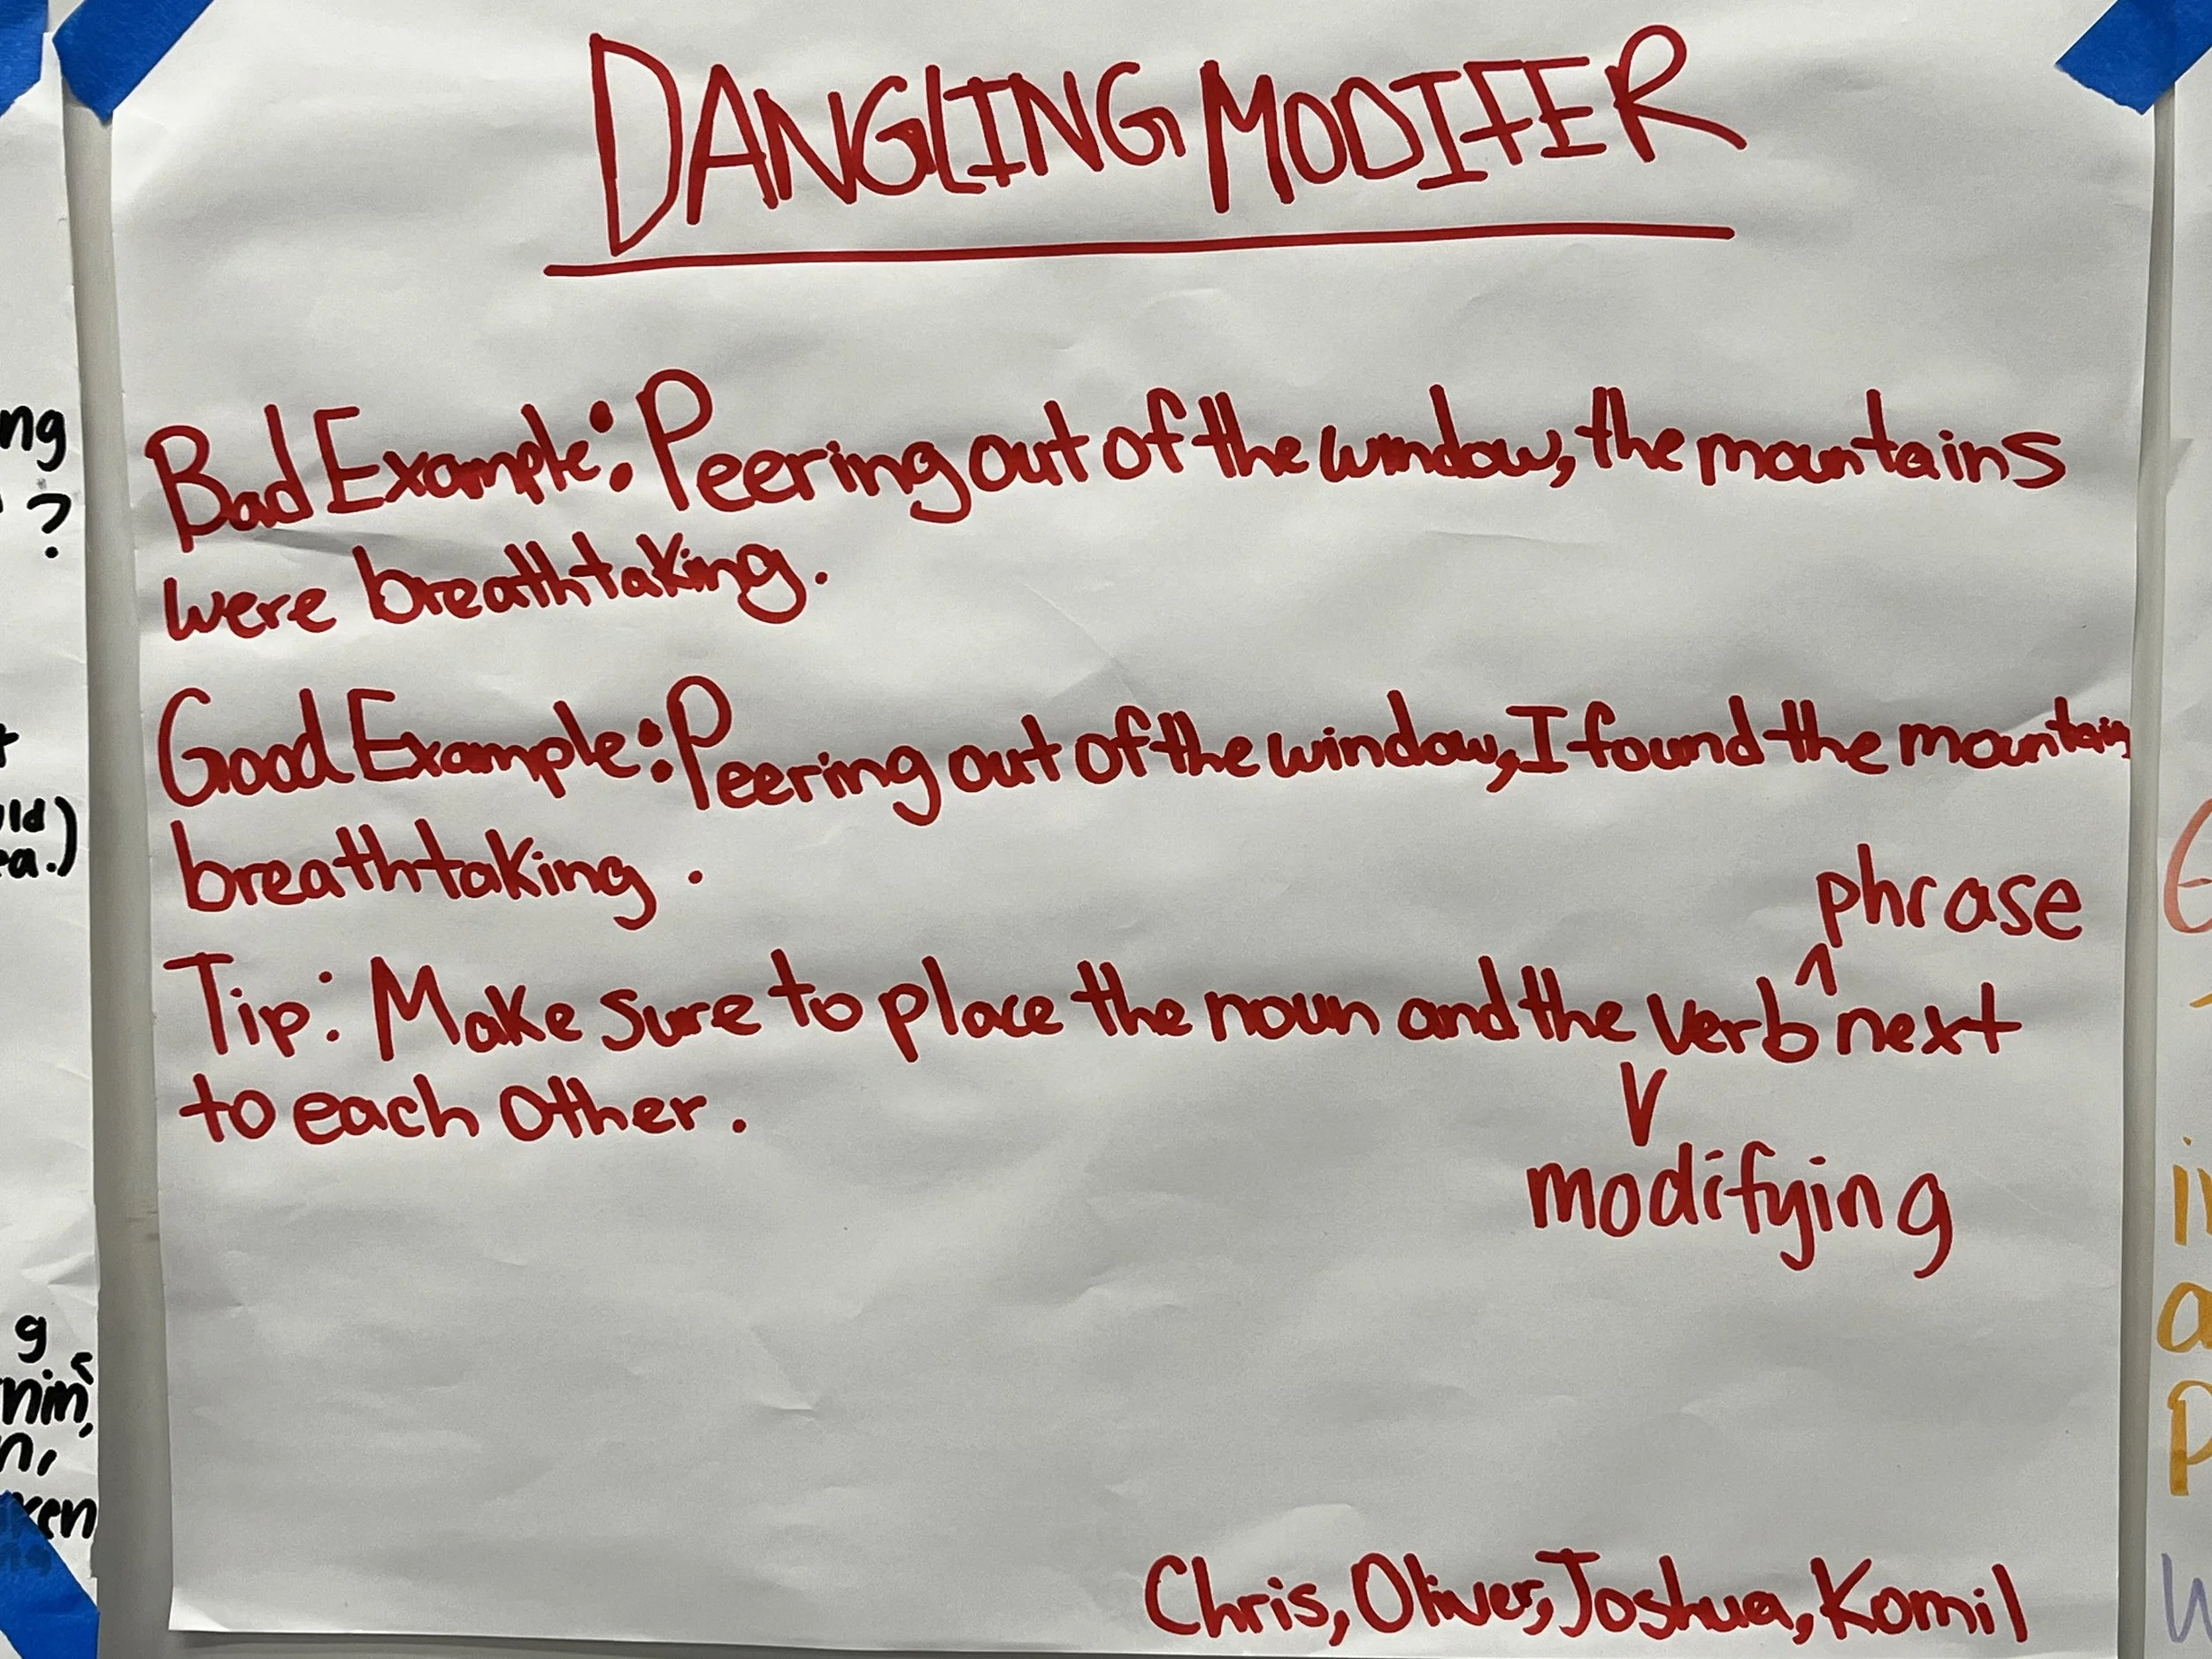 DANGLING MODIFER
Bad Example: Peering out of the window, the mountains
were breathtaking.
Good Example: Peering out of the window, I found the mountain
breathtaking.
phrase
Tip: Make sure to place the noun and the verb ^ next
to each other.
V
modifying
Chris, Oliver, Joshua, Komil
ng
?
uld
ea.)
g
n,
ken